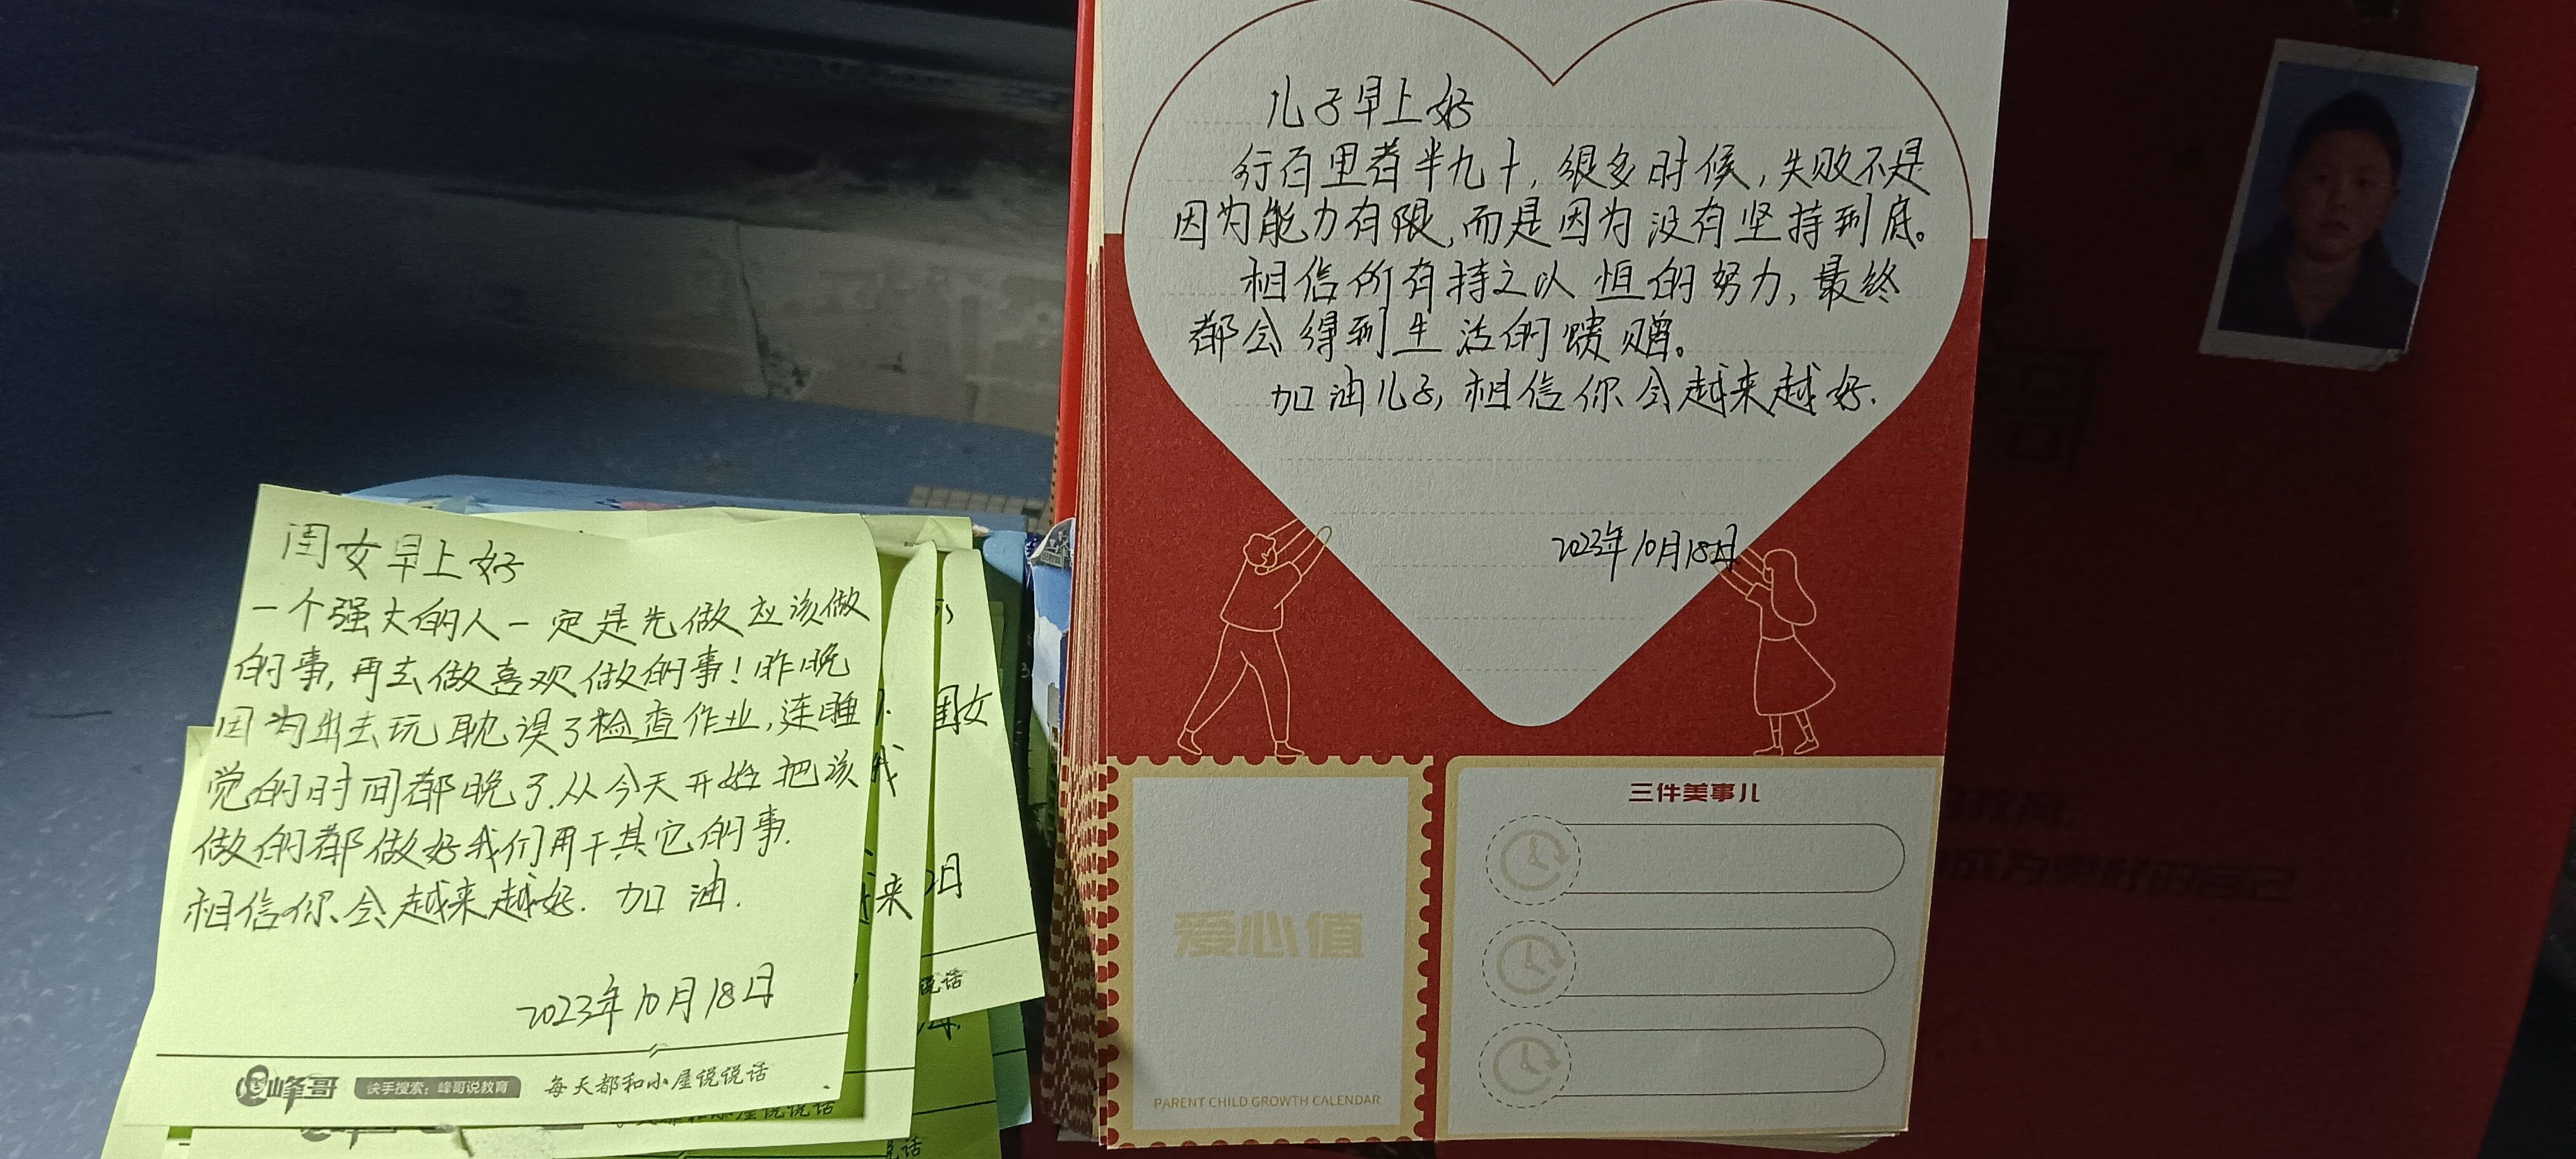 闺女早上好
一个强大的人一定是先做应该做
的事,再去做喜欢做的事!昨晚
因为出去玩耽误了检查作业,连睡
觉的时间都晚了.从今天开始把该
做的都做好我们再干其它的事.
相信你会越来越好. 加油.
2023年10月18日
峰哥
快手搜索:峰哥说教育
每天都和小屋说说话
闺女
我
来
2日
说话
说话
儿子早上好
行百里者半九十,很多时候,失败不是
因为能力有限,而是因为没有坚持到底。
相信所有持之以恒的努力,最终
都会得到生活的馈赠。
加油儿子,相信你会越来越好.
2023年10月18日
爱心值
PARENT CHILD GROWTH CALENDAR
三件美事儿
教育
成为更好的自己